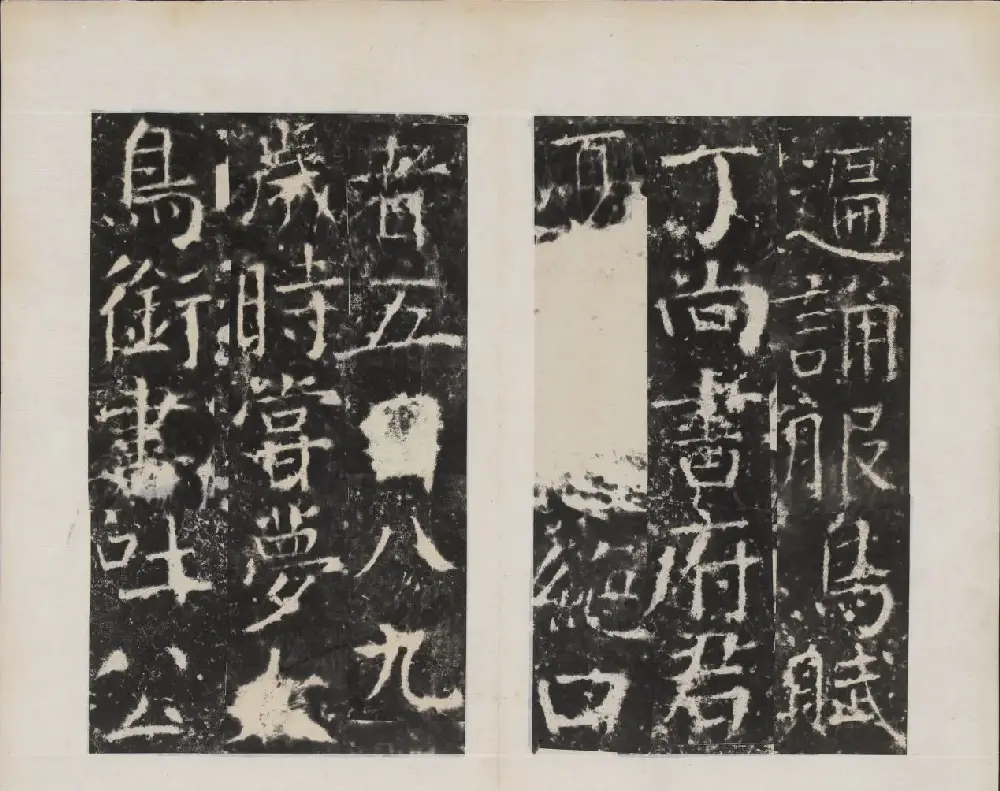 遍誦服鳥賦
丁尚書府君
絕口
者五八九
歲時甞夢大
鳥銜書吐公